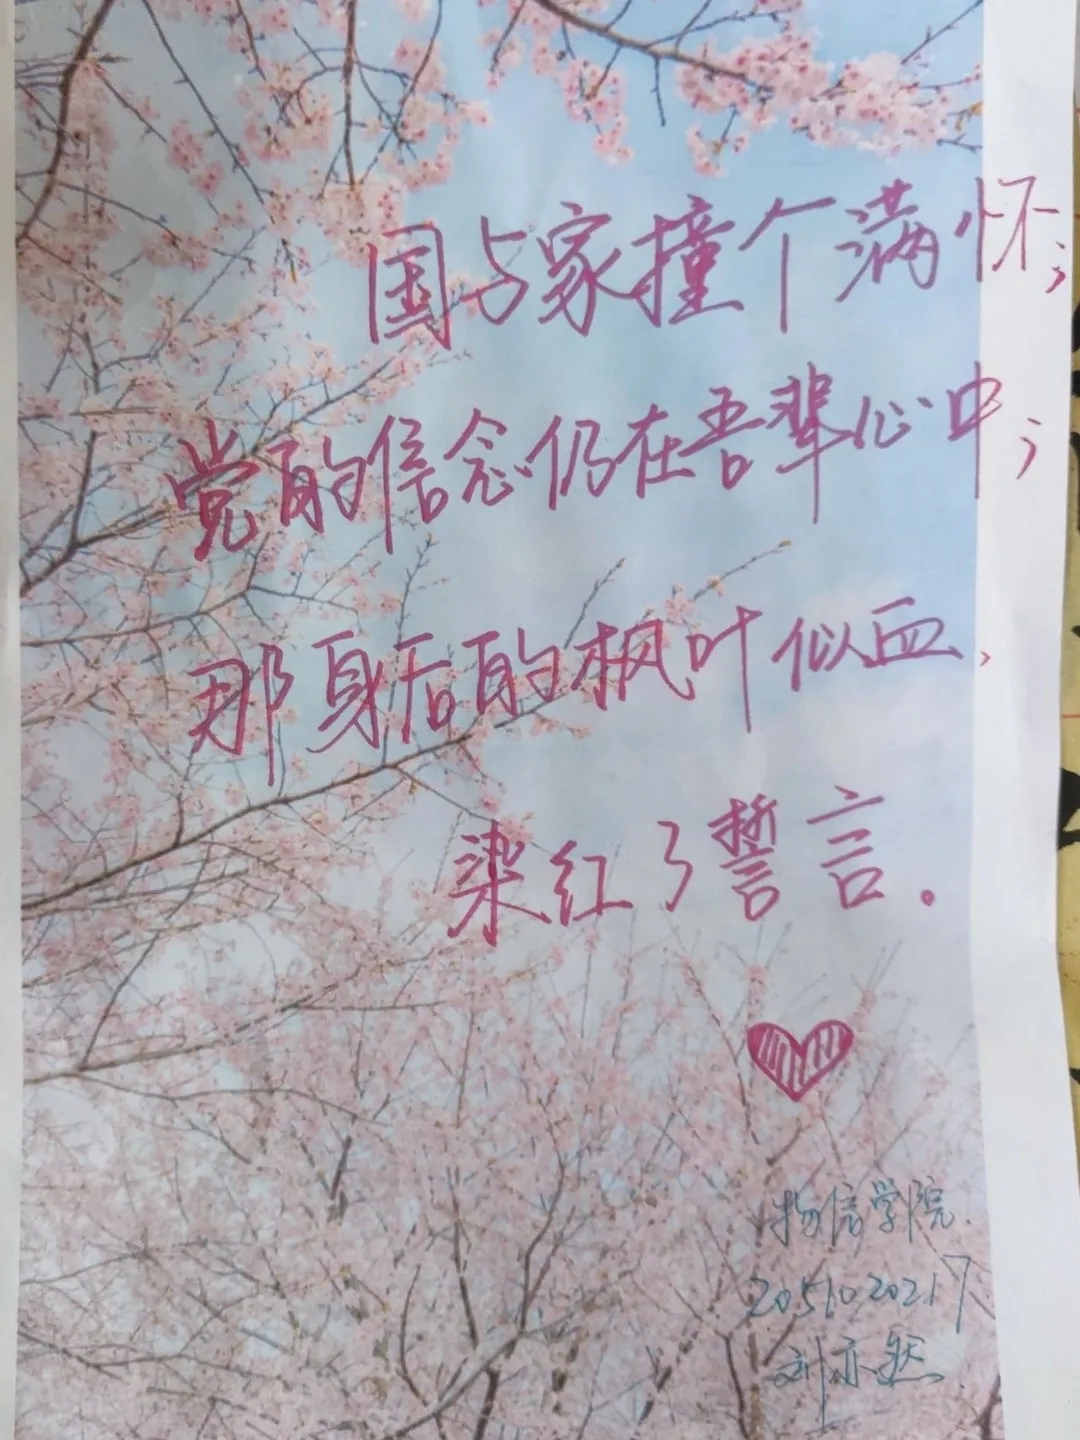 国与家撞个满怀；
党的信念仍在吾辈心中；
那身后的枫叶似血，
染红了誓言。
物信学院.
2051020217
刘亦然